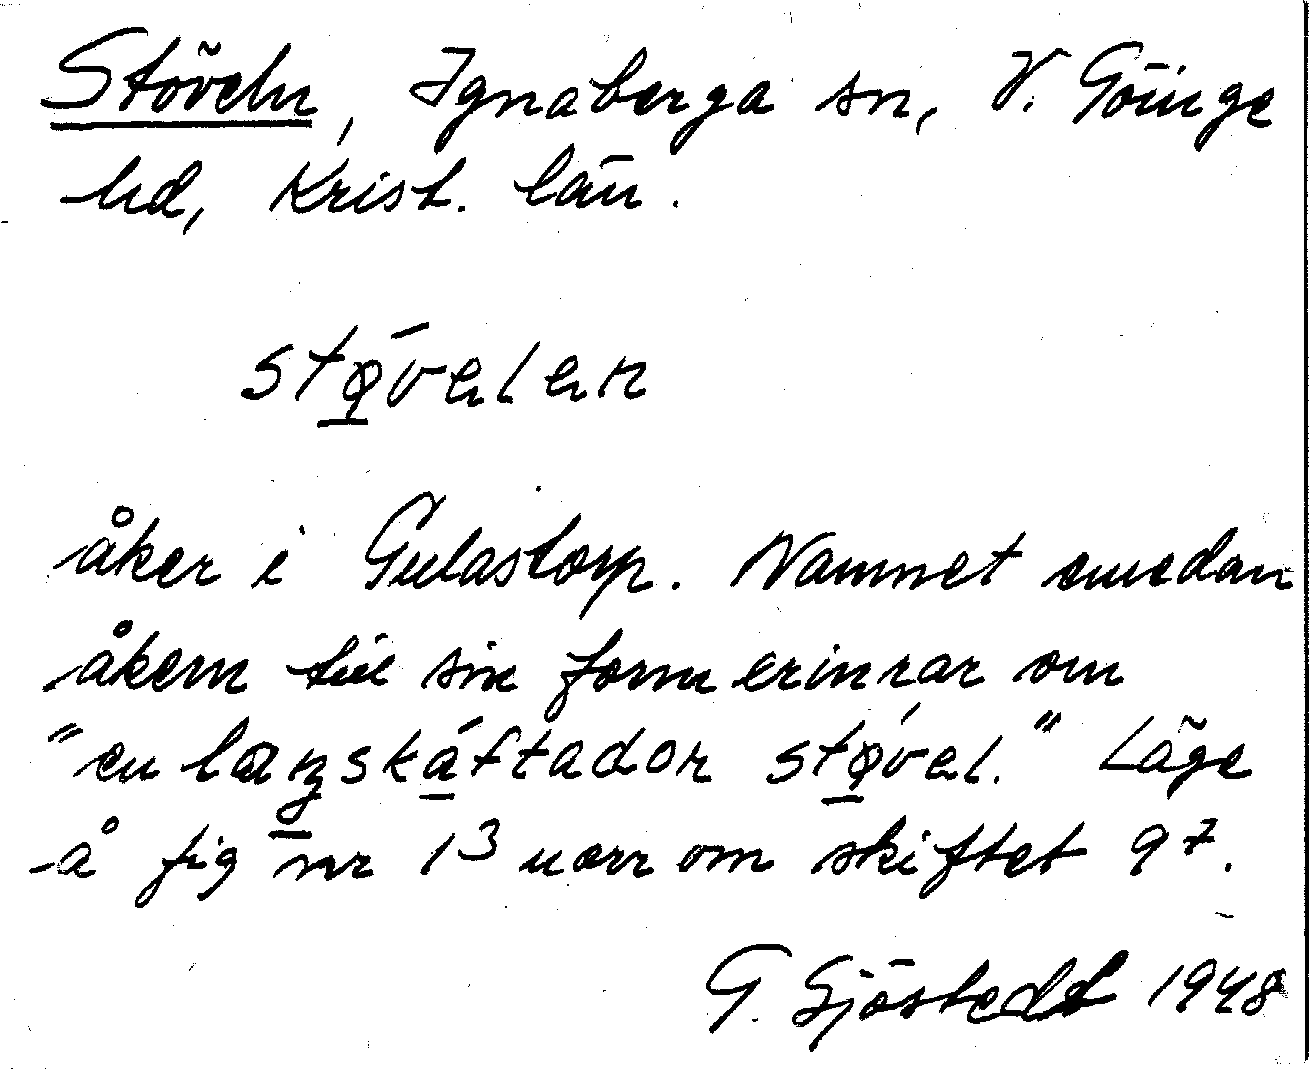 Stöveln, Ignaberga sn, V. Göinge
hd, Krist. län.
stǿ̱velen
åker i Gulastorp. Namnet emedan
åkern till sin form erinrar om
"en laŋská̱ftador stǿ̱vel." Läge
å fig nr 13 norr om skiftet 97.
G. Sjöstedt 1948